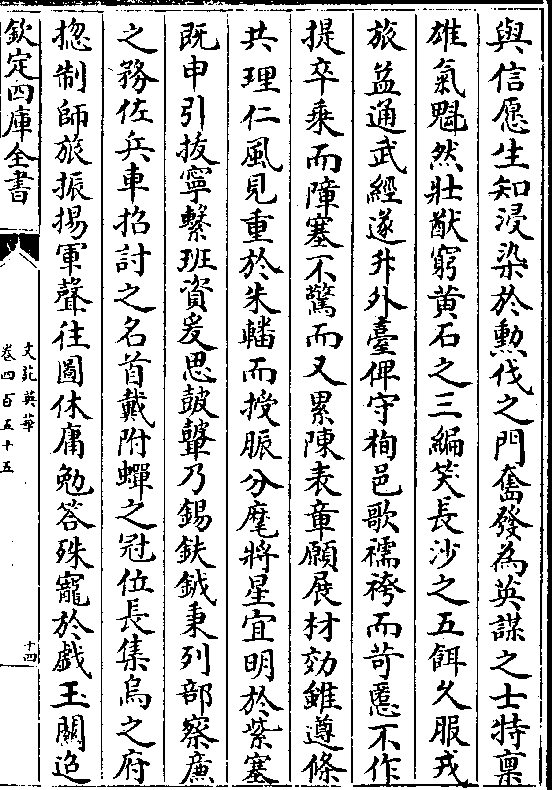 與信愿生知浸染於勲伐之門奮發為英謀之士特禀
雄氣魁然壯猷窮黄石之三編笑長沙之五餌久服戎
旅益通武經遂升外臺俾守栒邑歌襦袴而苛慝不作
提卒乗而障塞不驚而又累陳表章願展材効雖遵條
共理仁風見重於朱轓而授脤分麾將星宜明於紫塞
既申引拔寧繫班資爰思鼓鼙乃錫鈇鉞秉列部察亷
之務佐兵車招討之名首戴附蟬之冠位長集烏之府
揔制師旅振揚軍聲往圖休庸勉答殊寵於戯玉關迢
欽定四庫全書
文苑英華
卷四百五十五
十四